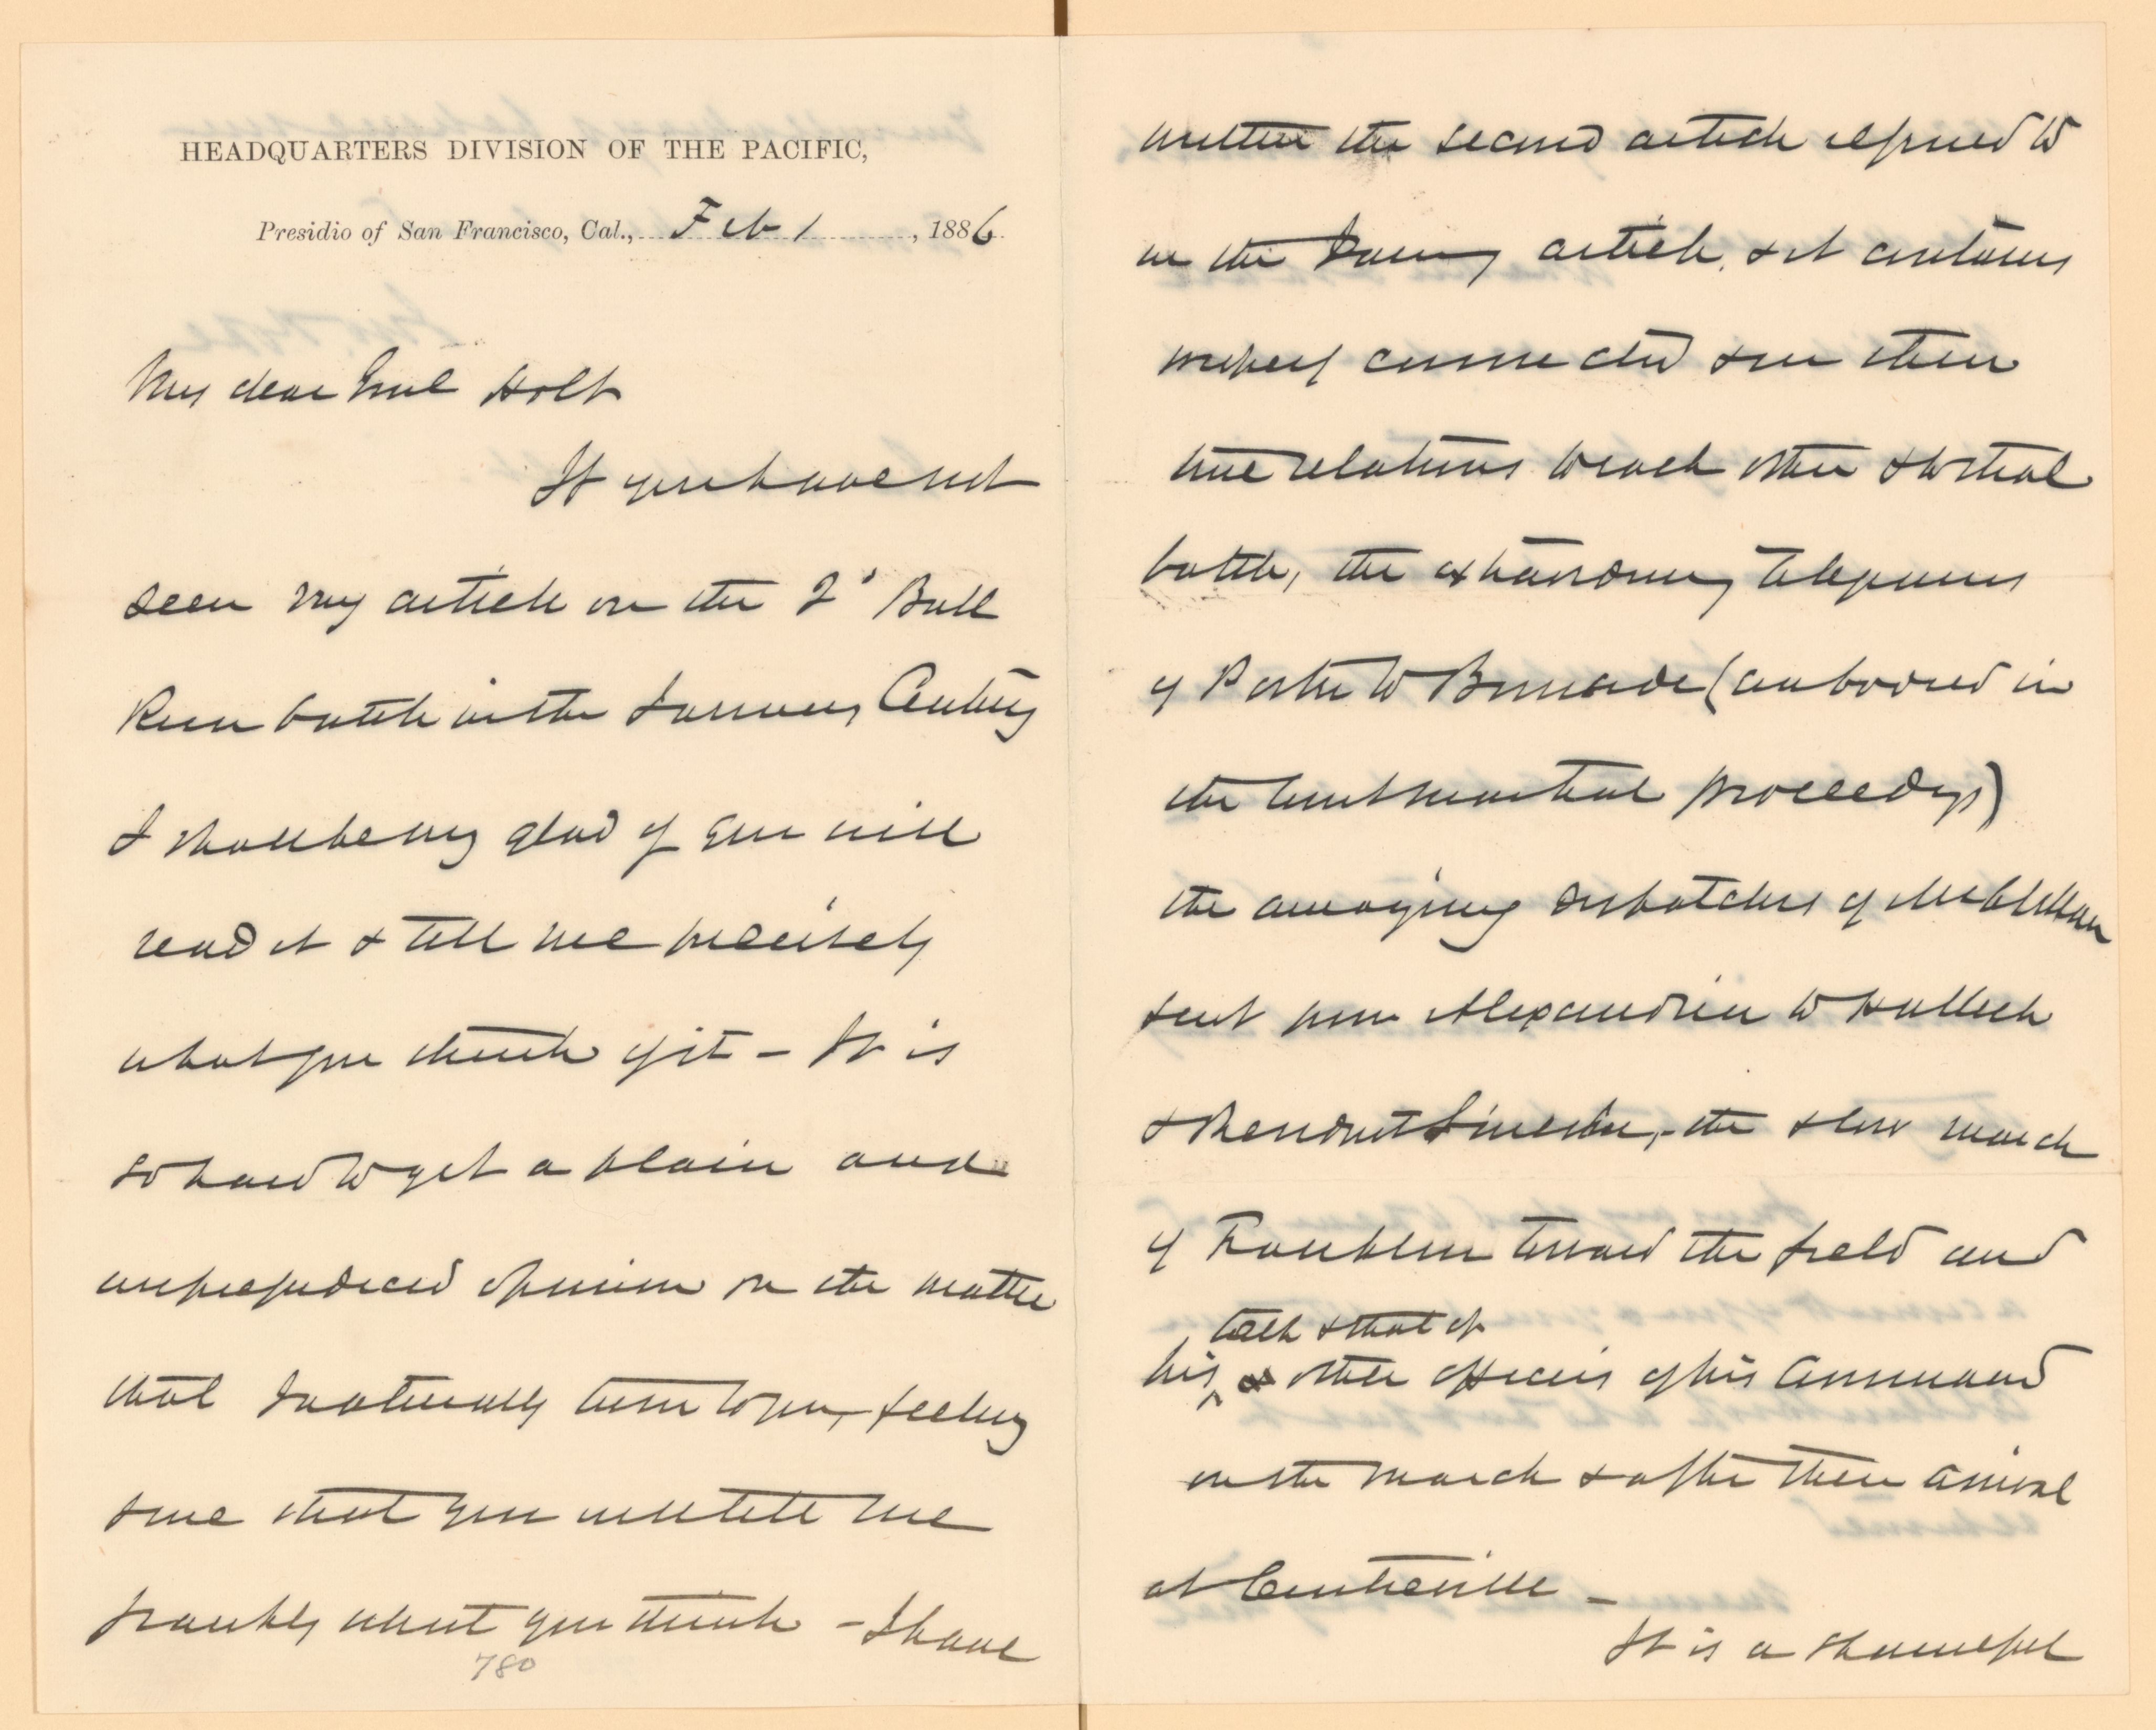 HEADQUARTERS DIVISION OF THE PACIFIC,
Presidio of San Francisco, Cal., Feb 1, 1886.
My dear Genl Holt
If you have not
seen my article on the 2d Bull
Run battle in the January Century
I shall be very glad if you will
read it & tell me precisely
what you think of it - It is
so hard to get a plain and
unprejudiced opinion on the matter
that I naturally turn to you, feeling
sure that you will tell me
frankly what you think - I have
780
written the second article referred to
in the January article, & it contains
properly connected & in their
true relations to each other & to that
battle, the extraordinary telegrams
of Porter to Burnside (embodied in
the Court martial proceedgs)
the amazing dispatches of McClellan
sent from Alexandria to Halleck
& Presidnt Lincoln, - the slow march
of Franklin toward the field and
talk & that of
his other officers of his Command
on the march & after their arrival
at Centreville -
It is a shameful